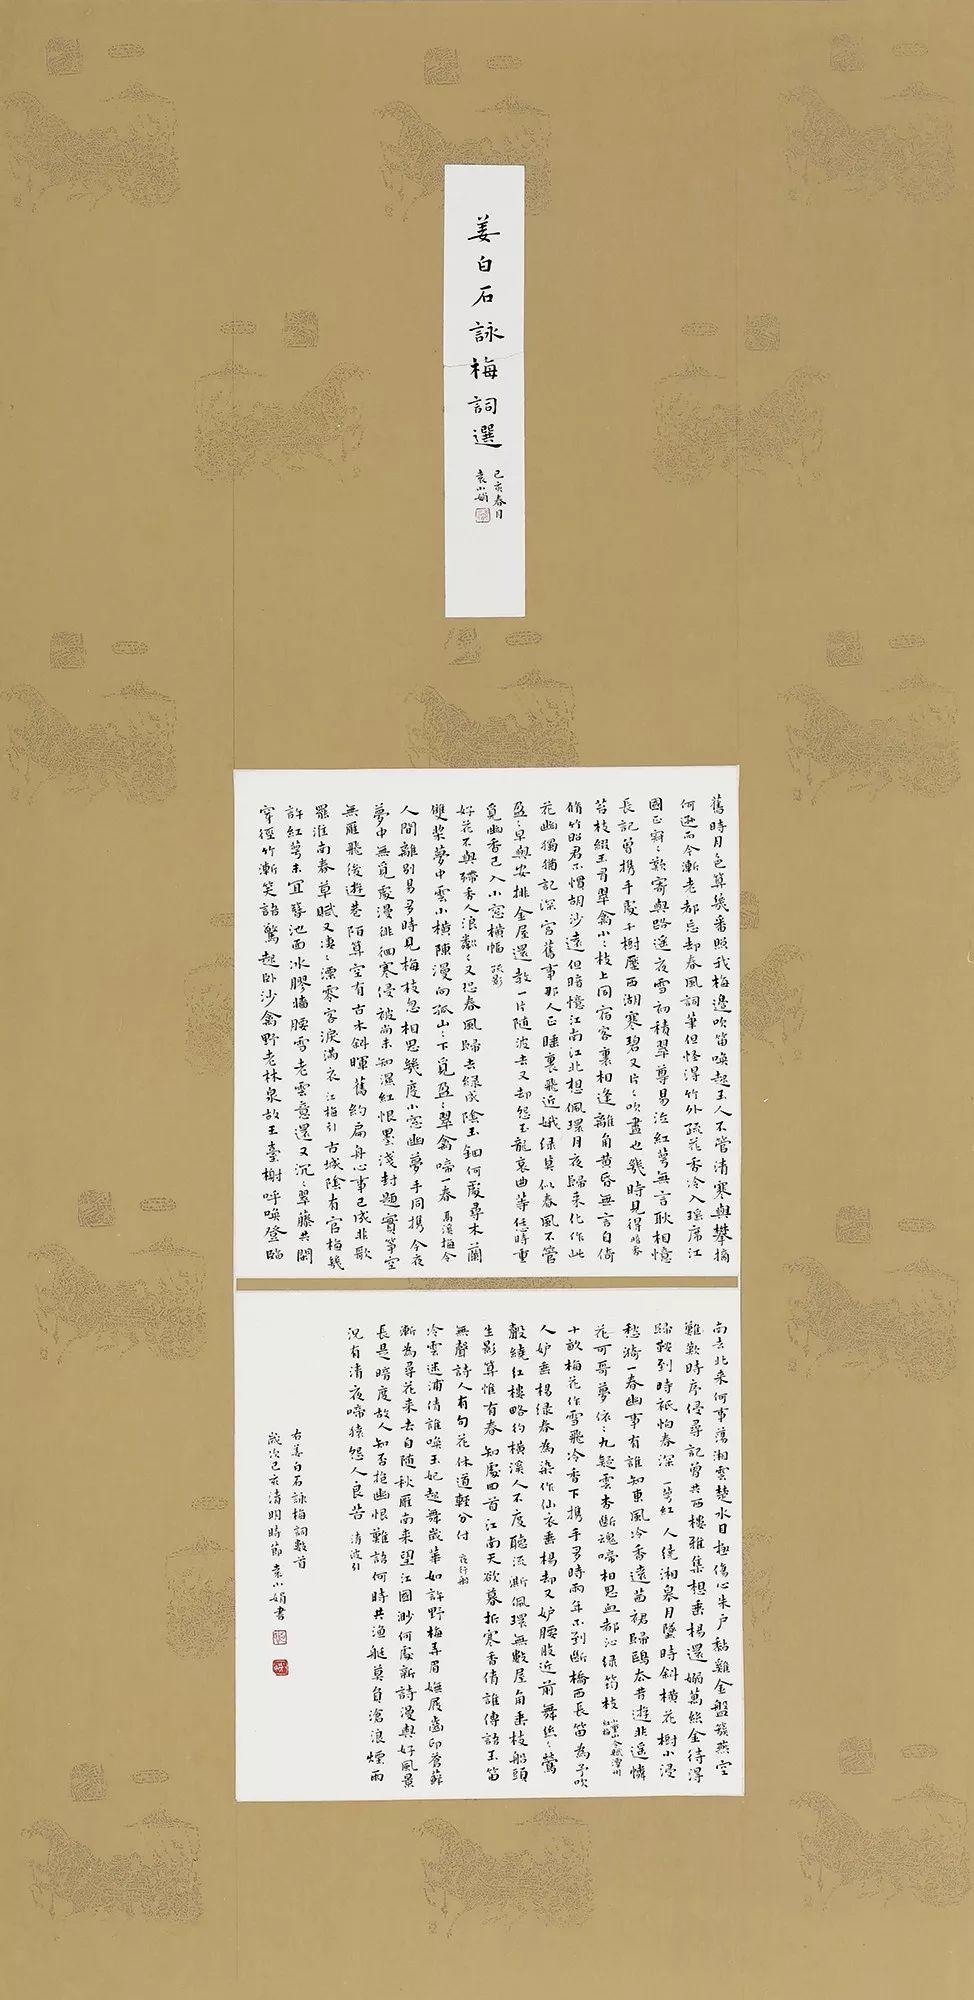 姜白石詠梅詞選
己亥春月
袁小娟
舊時月色算幾番照我梅邊吹笛喚起玉人不管清寒與攀摘
何遜而今漸老都忘却春風詞筆但怪得竹外疏花香冷入瑤席江
國正寂〻歎寄與路遙夜雪初積翠尊易泣紅萼無言耿相憶
長記曾携手處千樹壓西湖寒碧又片〻吹盡也幾時見得 暗香
苔枝綴玉有翠禽小〻枝上同宿客裏相逢籬角黃昏無言自倚
脩竹昭君不慣胡沙遠但暗憶江南江北想佩環月夜歸來化作此
花幽獨猶記深宮舊事那人正睡裏飛近蛾綠莫似春風不管
盈〻早與安排金屋還教一片隨波去又却怨玉龍哀曲等恁時重
覓幽香已入小窗橫幅 疏影
好花不與殢香人浪粼〻又恐春風歸去綠成陰玉鈿何處尋木蘭
雙槳夢中雲小橫陳漫向孤山〻下覓盈〻翠禽啼一春 鬲溪梅令
人間離別易多時見梅枝忽相思幾度小窗幽夢手同携今夜
夢中無覓處漫徘徊寒侵被尚未知濕紅恨墨淺封題寶箏空
無雁飛後遊巷陌算空有古木斜暉舊約扁舟心事已成非歌
罷淮南春草賦又淒〻漂零客淚滿衣 江梅引 古城陰有官梅幾
許紅萼未宜簪池面冰膠牆腰雪老雲意還又沉〻翠藤共閑
穿徑竹漸笑語驚起臥沙禽野老林泉故王臺榭呼喚登臨
南去北來何事蕩湘雲楚水目極傷心朱戶黏雞金盤簇燕空
難歎時序侵尋記曾共西樓雅集想垂楊還嫋萬絲金待得
歸鞍到時祇怕春深 一萼紅 人繞湘皋月墜時斜橫花樹小浸
愁漪一春幽事有誰知東風冷香遠茜裙歸鷗去昔遊非遙憐
花可哥夢依〻九疑雲杳斷魂啼相思血都沁綠筠枝 小重山令賦潭州紅梅
十畝梅花作雪飛冷香下携手多時兩年不到斷橋西長笛為予吹
人妒垂楊綠春為染作仙衣垂楊却又妒腰肢近前舞絲〻 鶯
聲繞紅樓 略彴橫溪人不度聽流澌佩環無數屋角垂枝船頭
生影算惟有春知處回首江南天欲暮折寒香倩誰傳語玉笛
無聲詩人有句花休道輕分付 夜行船
冷雲迷浦倩誰喚玉妃起舞歲華如許野梅弄眉嫵屐齒印蒼蘚
漸為尋花來去自隨秋雁南來望江國渺何處新詩漫與好風景
長是暗度故人知否抱幽恨難語何時共漁艇莫負滄浪煙雨
況有清夜啼猿怨人良苦 清波引
右姜白石詠梅詞數首
歲次己亥清明時節袁小娟書